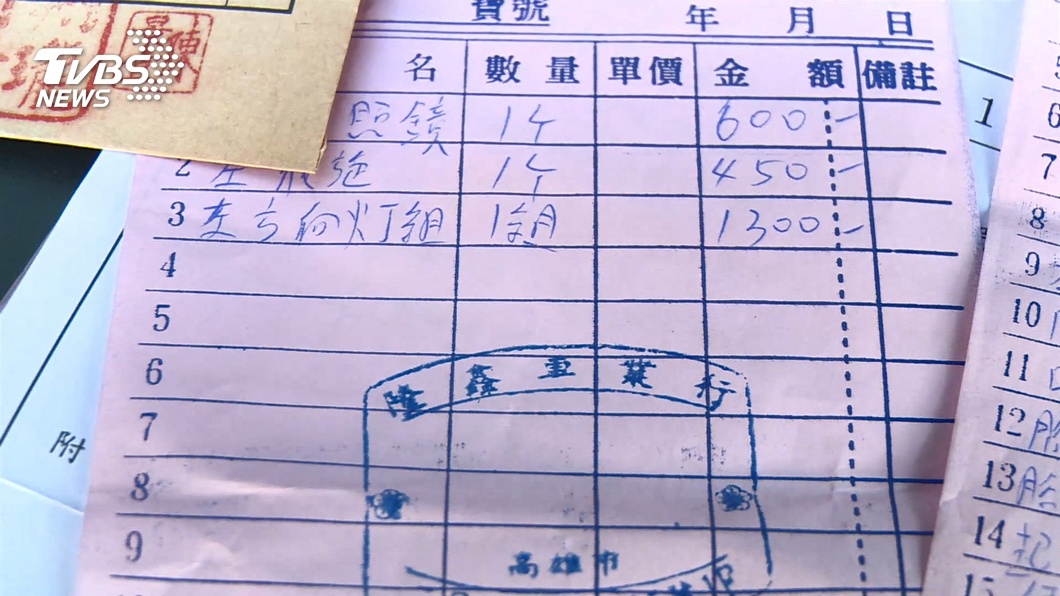 TVBS
NEWS
寶號 年 月 日
名 數量 單價 金額 備註
照鏡 1个 600-
2 1个 450-
3 左方向灯組 1組 1300-
4
5
6
7
8
9
隆鑫車業行
高雄市
附
1
6
7
8
9
10
11
12
13
14
15